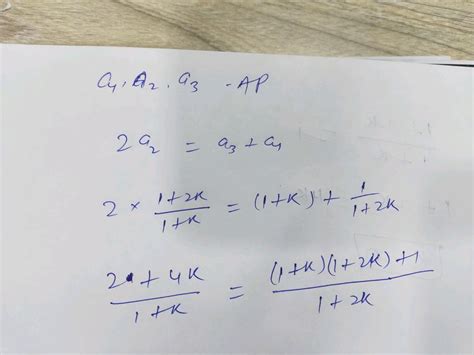 a₁, a₂, a₃ - AP
2a₂ = a₃ + a₁
2 × (1+2K)/(1+K) = (1+K) + 1/(1+2K)
(2 + 4K)/(1+K) = ((1+K)(1+2K)+1)/(1+2K)